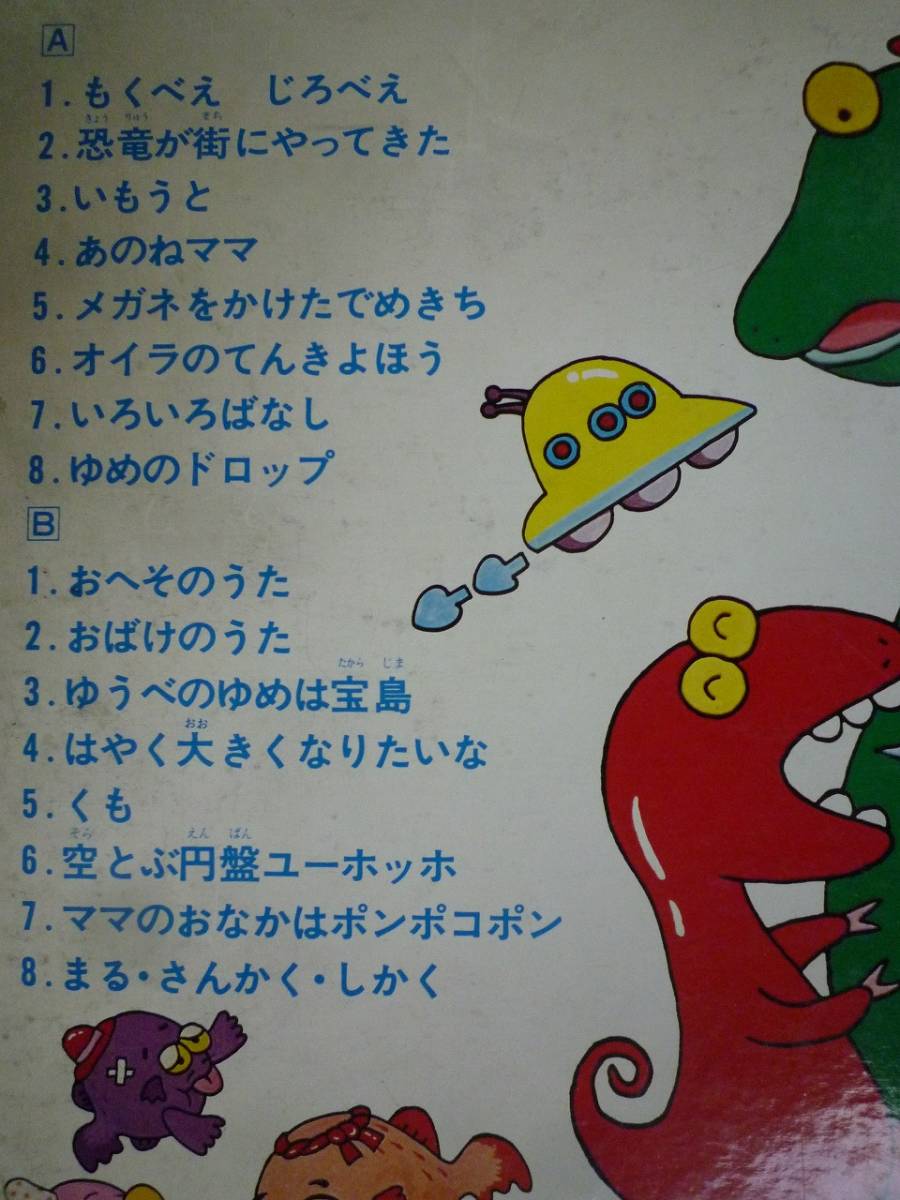 A
1. もくべえ　じろべえ
きょう りゅう まち
2. 恐竜が街にやってきた
3. いもうと
4. あのねママ
5. メガネをかけたでめきち
6. オイラのてんきよほう
7. いろいろばなし
8. ゆめのドロップ
B
1. おへそのうた
2. おばけのうた
たから じま
3. ゆうべのゆめは宝島
おお
4. はやく大きくなりたいな
5. くも
そら えん ばん
6. 空とぶ円盤ユーホッホ
7. ママのおなかはポンポコポン
8. まる・さんかく・しかく